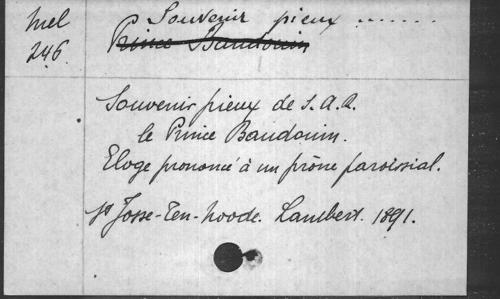 Mel
246
Souvenir pieux .......
Prince Baudouin
Souvenir pieux de S.A.R.
le Prince Baudouin.
Eloge prononcé à un prône paroissial.
St Josse-Ten-Noode. Lambert. 1891.